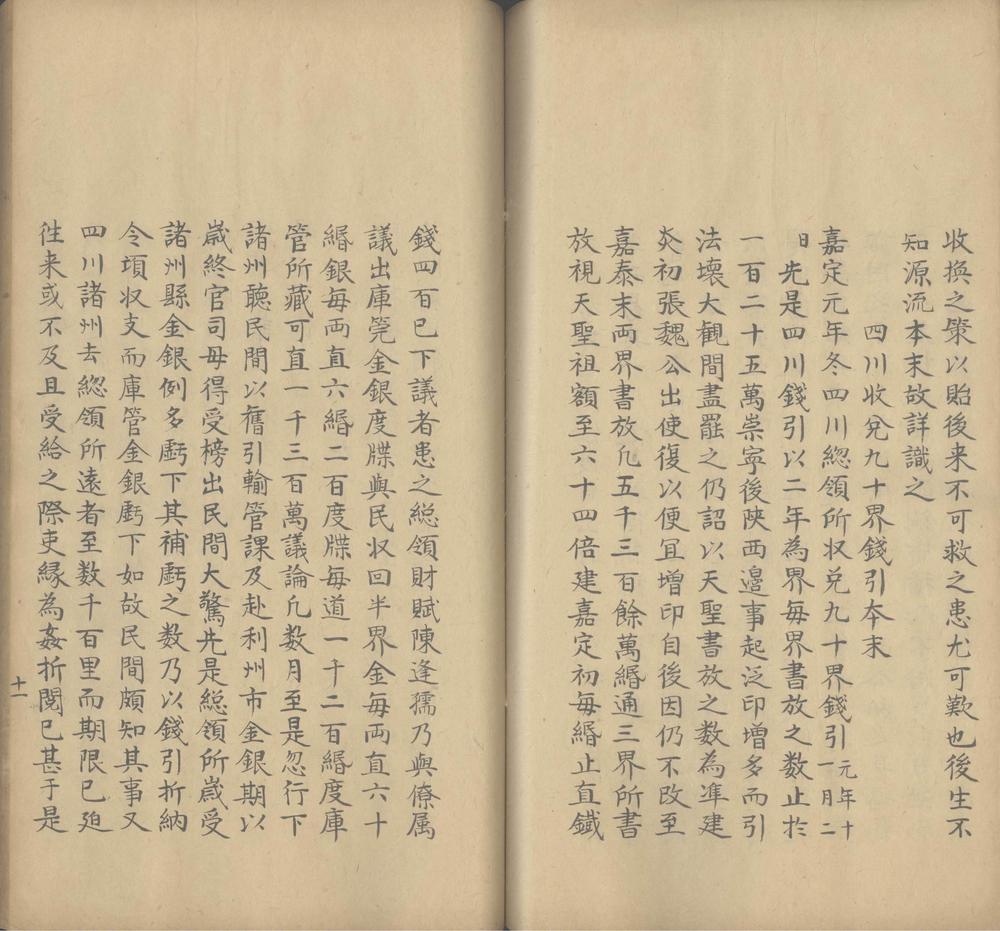 收換之䇿以貽後来不可救之患尤可歎也後生不
知源流本末故詳識之
四川收兌九十界錢引本末
嘉定元年冬四川緫領所収兌九十界錢引元年十一月二
日先是四川錢引以二年為界毎界書放之数止於
一百二十五萬崇寧後陜西邉事起泛印增多而引
法壊大觀間盡罷之仍詔以天聖書放之数為凖建
炎初張魏公出使復以便冝增印自後因仍不改至
嘉泰末两界書放凢五千三百餘萬緡通三界所書
放視天聖祖額至六十四倍建嘉定初毎緡止直鐵
錢四百已下議者患之緫領財賦陳逢孺乃與僚属
議出庫筦金銀度牒與民収囬半界金毎両直六十
緡銀毎両直六緡二百度牒毎道一千二百緡度庫
管所藏可直一千三百萬議論凢数月至是忽行下
諸州聽民間以舊引輸管課及赴利州市金銀期以
歲終官司毋得受榜出民間大驚先是緫領所歲受
諸州縣金銀例多虧下其補虧之数乃以錢引折納
令項収支而庫管金銀虧下如故民間頗知其事又
四川諸州去緫領所遠者至数千百里而期限已廹
徃来或不及且受給之際吏縁為姦折閱已甚于是
十一